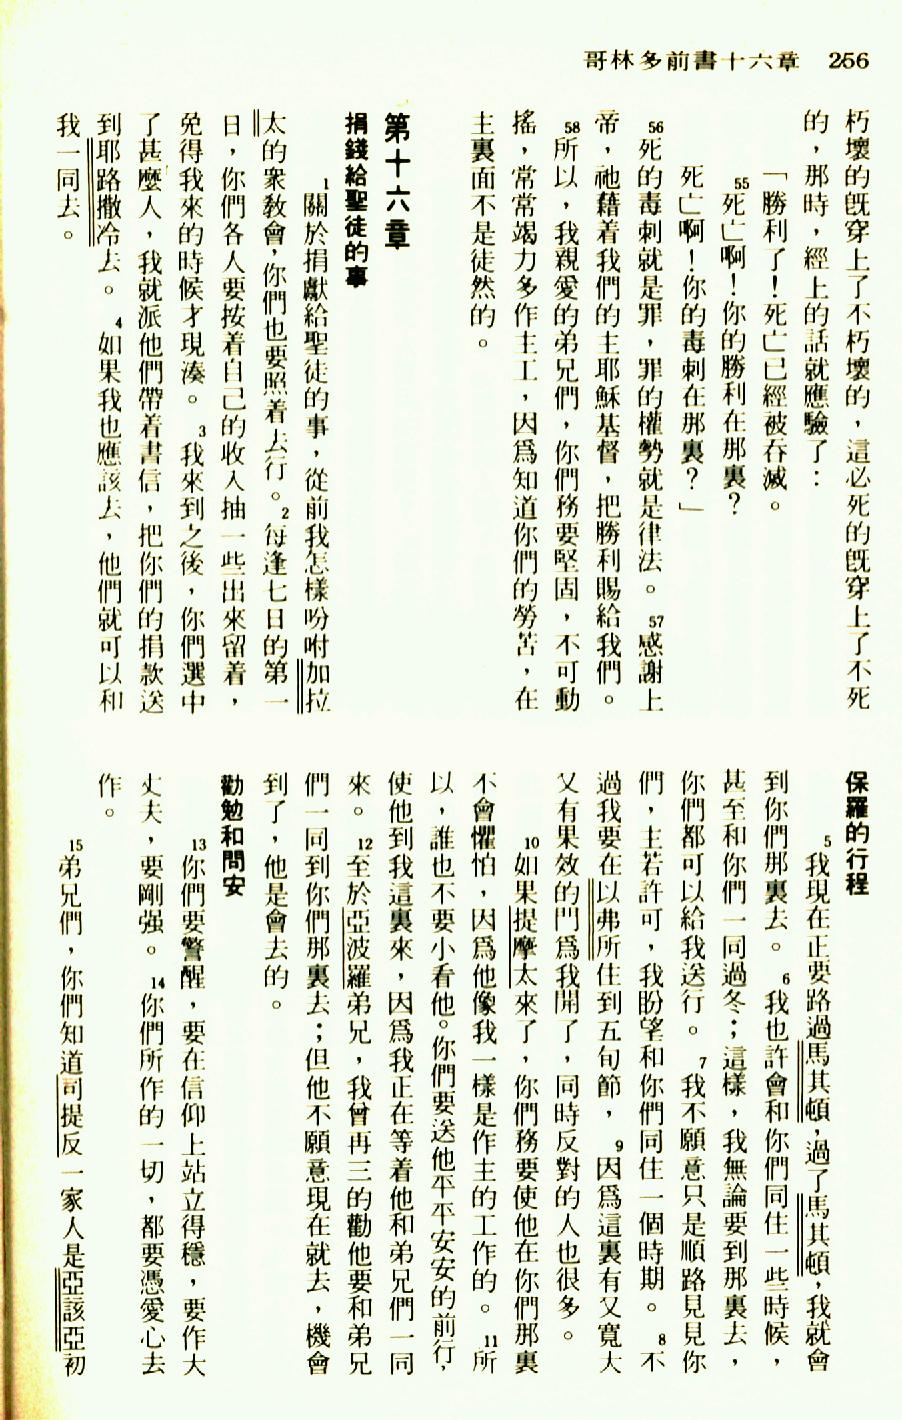 哥林多前書十六章 256
朽壞的既穿上了不朽壞的，這必死的既穿上了不死
的，那時，經上的話就應驗了：
「勝利了！死亡已經被吞滅。
55死亡啊！你的勝利在那裏？
死亡啊！你的毒刺在那裏？」
56死的毒刺就是罪，罪的權勢就是律法。57感謝上
帝，祂藉着我們的主耶穌基督，把勝利賜給我們。
58所以，我親愛的弟兄們，你們務要堅固，不可動
搖，常常竭力多作主工，因爲知道你們的勞苦，在
主裏面不是徒然的。
第十六章
捐錢給聖徒的事
1關於捐獻給聖徒的事，從前我怎樣吩咐加拉
太的衆敎會，你們也要照着去行。2每逢七日的第一
日，你們各人要按着自己的收入抽一些出來留着，
免得我來的時候才現凑。3我來到之後，你們選中
了甚麼人，我就派他們帶着書信，把你們的捐款送
到耶路撒冷去。4如果我也應該去，他們就可以和
我一同去。
保羅的行程
5我現在正要路過馬其頓，過了馬其頓，我就會
到你們那裏去。6我也許會和你們同住一些時候，
甚至和你們一同過冬；這樣，我無論要到那裏去，
你們都可以給我送行。7我不願意只是順路見見你
們，主若許可，我盼望和你們同住一個時期。8不
過我要在以弗所住到五旬節，9因爲這裏有又寬大
又有果效的門爲我開了，同時反對的人也很多。
10如果提摩太來了，你們務要使他在你們那裏
不會懼怕，因爲他像我一樣是作主的工作的。11所
以，誰也不要小看他。你們要送他平平安安的前行，
使他到我這裏來，因爲我正在等着他和弟兄們一同
來。12至於亞波羅弟兄，我曾再三的勸他要和弟兄
們一同到你們那裏去；但他不願意現在就去，機會
到了，他是會去的。
勸勉和問安
13你們要警醒，要在信仰上站立得穩，要作大
丈夫，要剛强。14你們所作的一切，都要憑愛心去
作。
15弟兄們，你們知道司提反一家人是亞該亞初